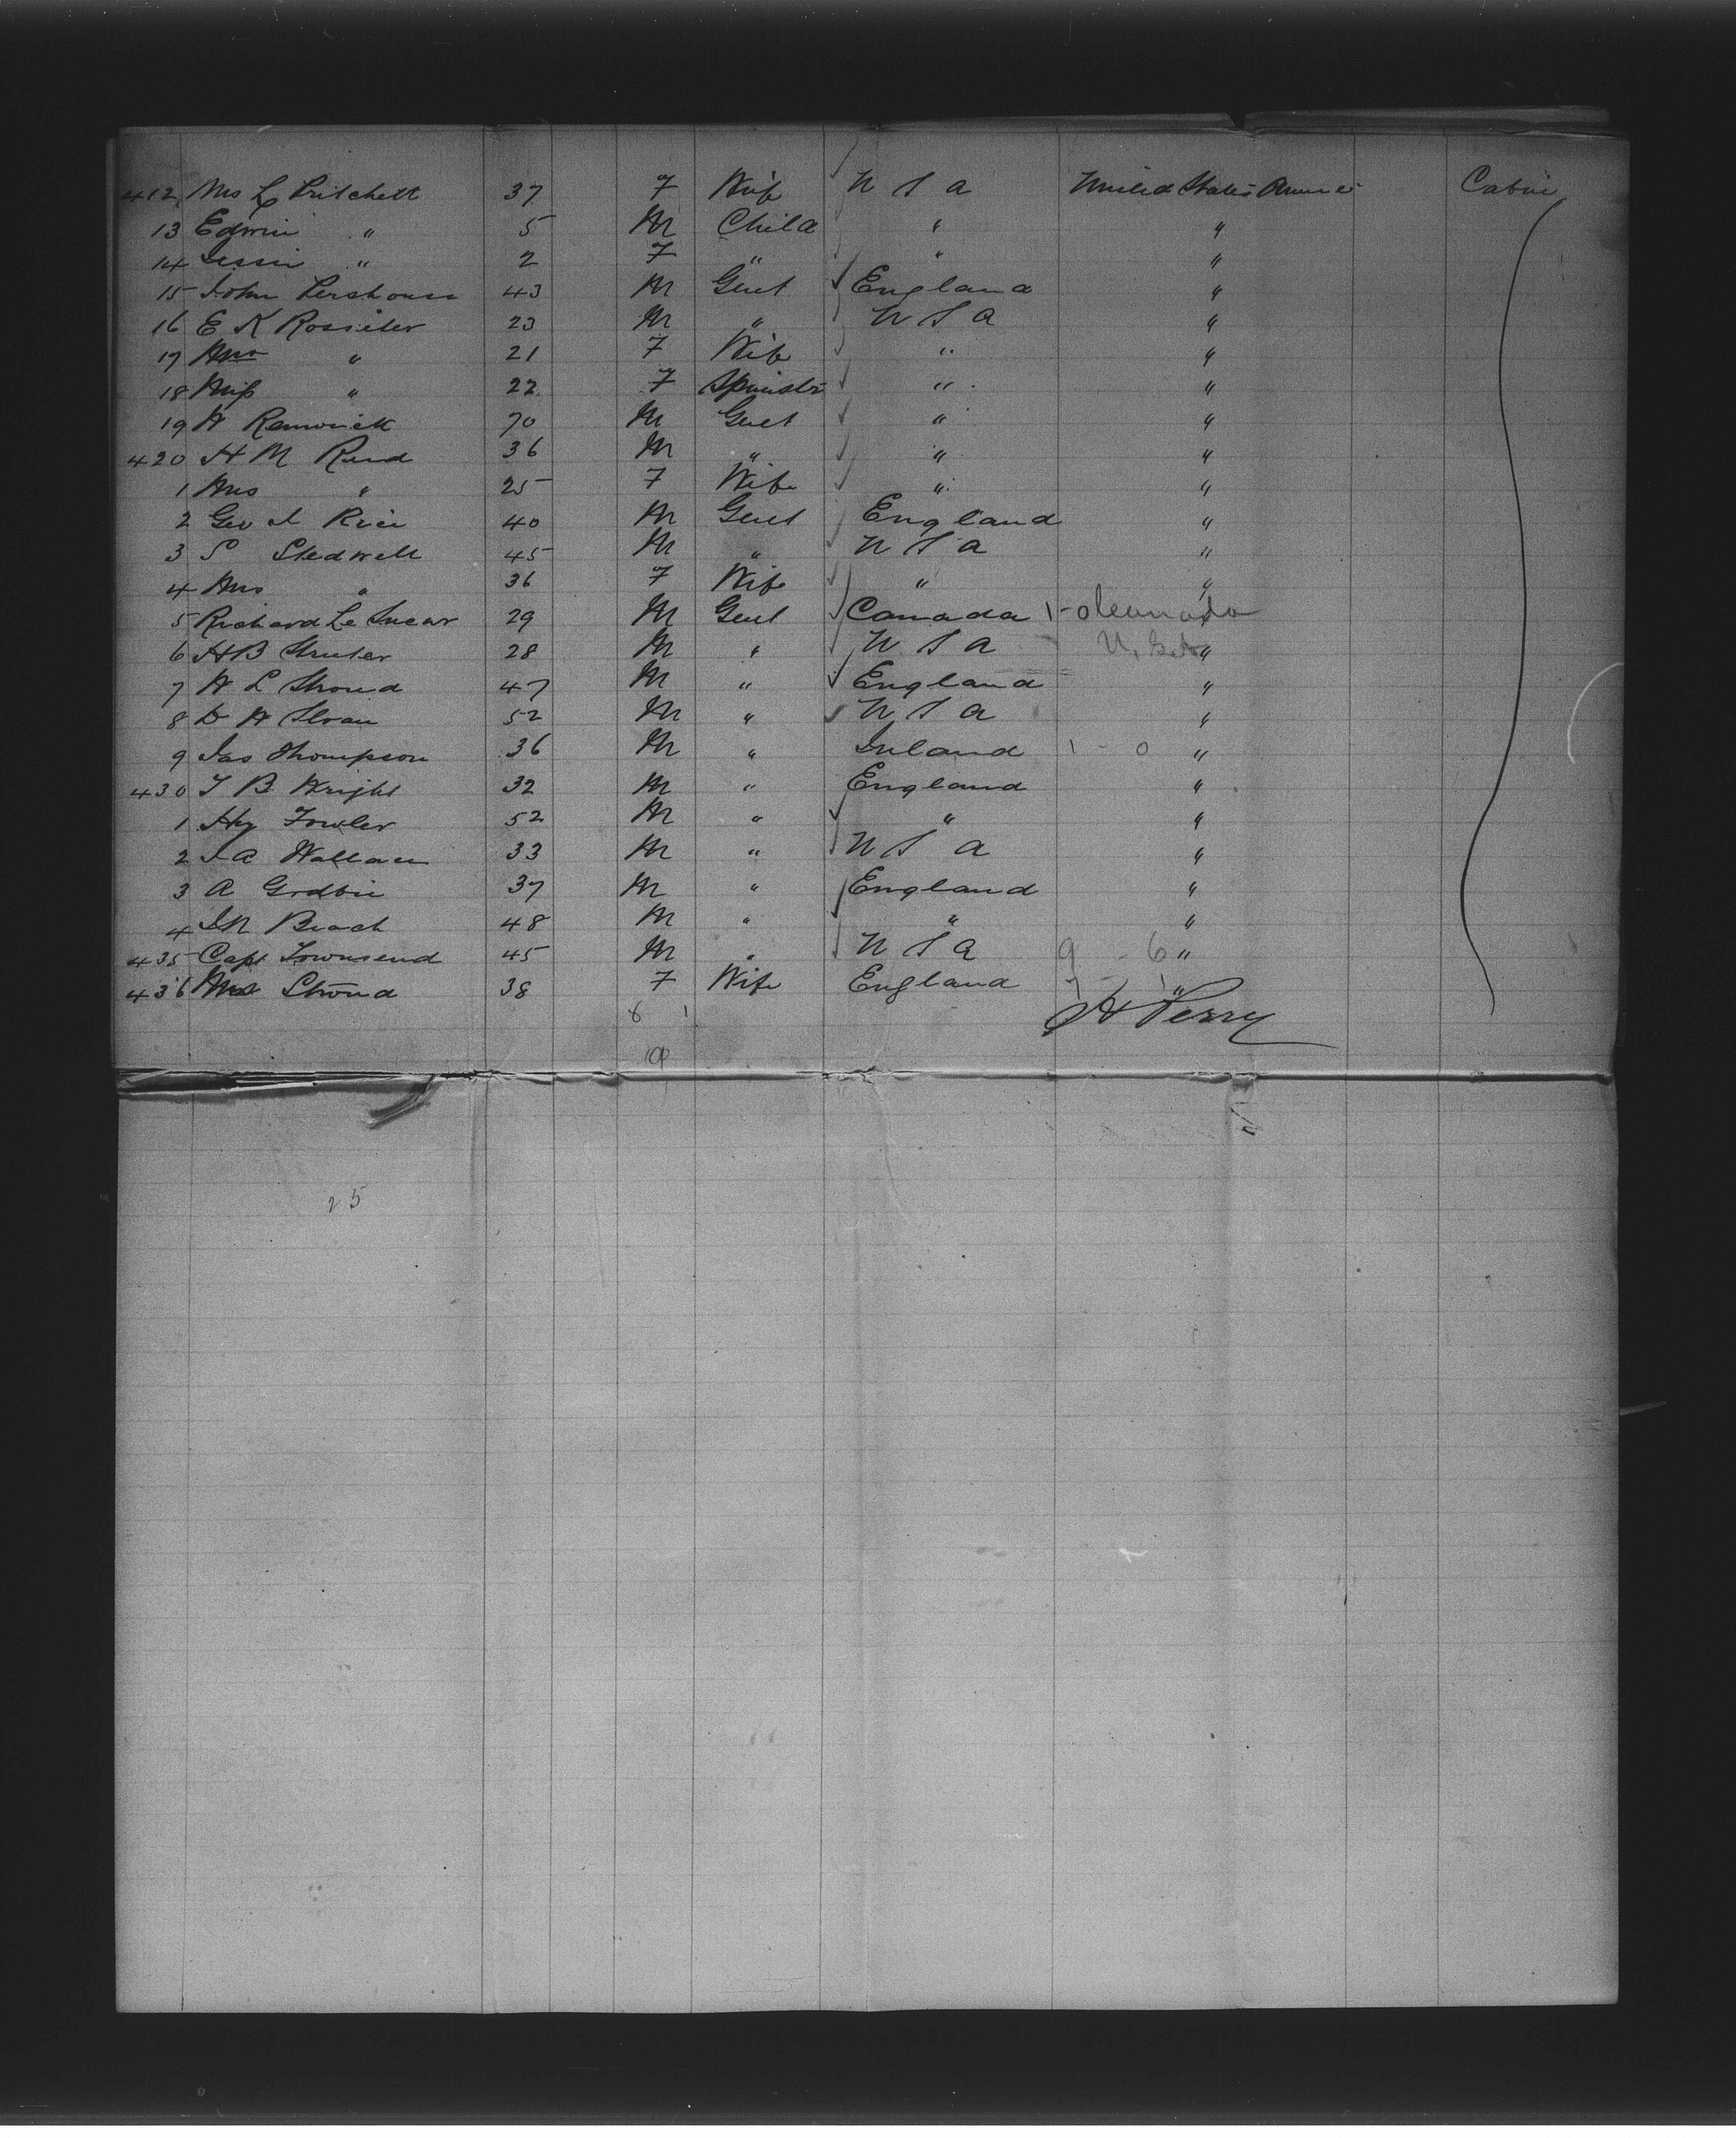 412 Mrs L Pritchett 37 F Wife U S A United States Americ Cabin
13 Edwin " 5 M Child " "
14 Jessie " 2 F " " "
15 John Pershouse 43 M Gent England "
16 E K Rossiter 23 M " U S A "
17 Mrs " 21 F Wife " "
18 Miss " 22 F Spinster " "
19 W Renwick 70 M Gent " "
420 H M Rand 36 M " " "
1 Mrs " 25 F Wife " "
2 Geo J Rice 40 M Gent England "
3 S Stedwell 45 M " U S A "
4 Mrs " 36 F Wife " "
5 Richard Le Sueur 29 M Gent Canada 1 - 0 Canada "
6 H B 28 M " U S A "
7 W L Stroud 47 M " England "
8 W Sloan 52 M " U S A "
9 Jas Thompson 36 M " Ireland 1 - 0 "
430 T B Wright 32 M " England "
1 Hy Fowler 52 M " " "
2 J A Wallace 33 M " U S A "
3 A 37 M " England "
4 Beach 48 M " " "
435 Capt Townsend 45 M " U S A 9 - 6 "
436 Mrs Stroud 38 F Wife England "
Perry
25